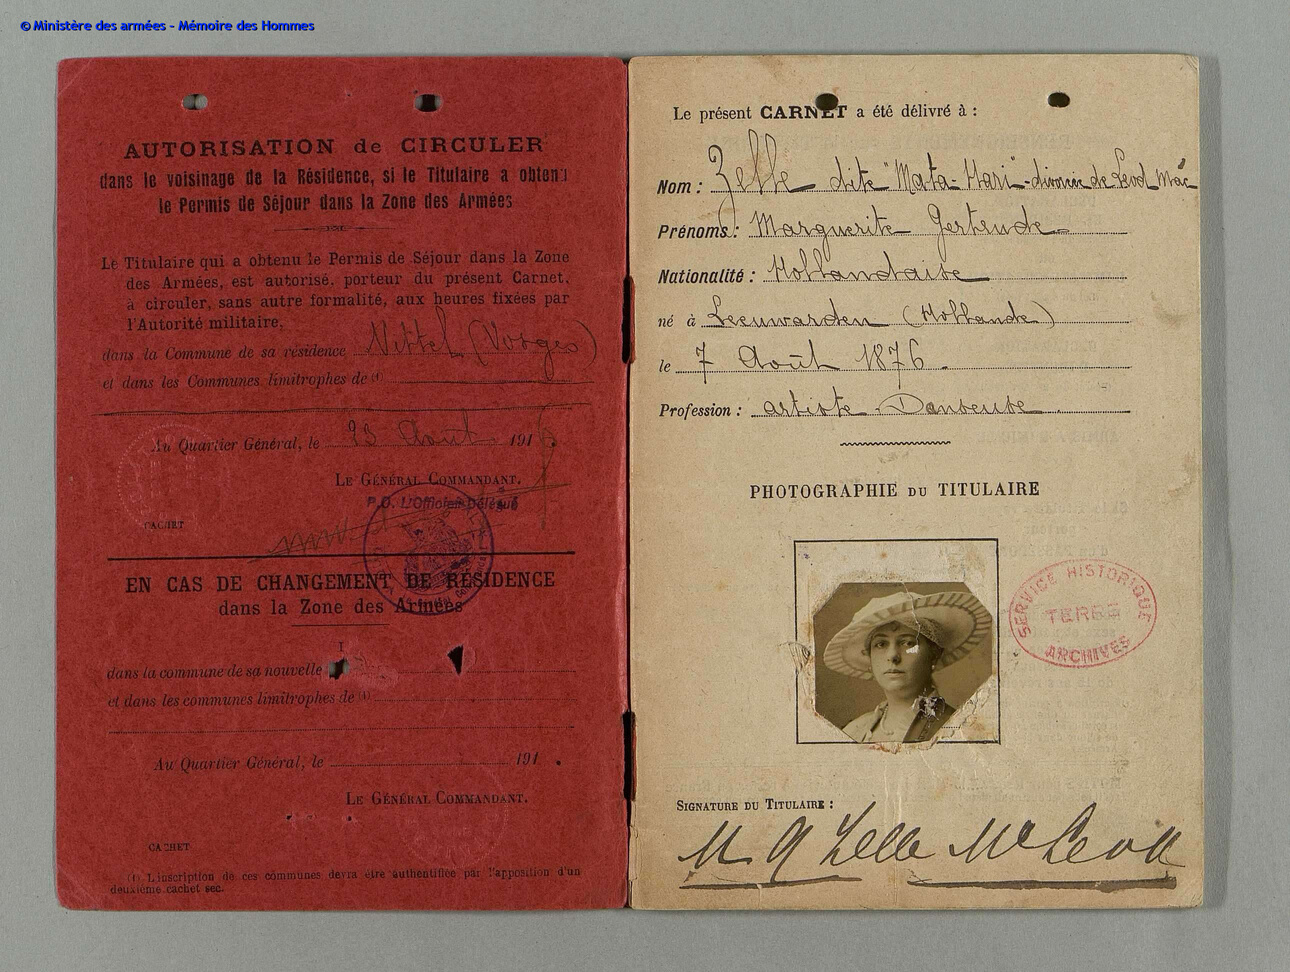 © Ministère des armées - Mémoire des Hommes
AUTORISATION de CIRCULER
dans le voisinage de la Résidence, si le Titulaire a obtenu
le Permis de Séjour dans la Zone des Armées
Le Titulaire qui a obtenu le Permis de Séjour dans la Zone
des Armées, est autorisé, porteur du présent Carnet,
à circuler, sans autre formalité, aux heures fixées par
l'Autorité militaire,
dans la Commune de sa résidence Vittel (Vosges)
et dans les Communes limitrophes de (1)
Au Quartier Général, le 23 Août 191
LE GÉNÉRAL COMMANDANT,
P.O. L'Officier Délégué
CACHET
EN CAS DE CHANGEMENT DE RÉSIDENCE
dans la Zone des Armées
I
dans la commune de sa nouvelle
et dans les communes limitrophes de (1)
Au Quartier Général, le 191 .
LE GÉNÉRAL COMMANDANT.
CACHET
(1) L'inscription de ces communes devra être authentifiée par l'apposition d'un
deuxième cachet sec.
Le présent CARNET a été délivré à :
Nom : Zelle dite "Mata-Hari" divorcée de Leod Mac
Prénoms : Marguerite Gertrude
Nationalité : Hollandaise
né à Leeuwarden (Hollande)
le 7 Août 1876
Profession : artiste Danseuse
PHOTOGRAPHIE DU TITULAIRE
SERVICE HISTORIQUE
TERRE
ARCHIVES
SIGNATURE DU TITULAIRE :
M G Zelle McLeod